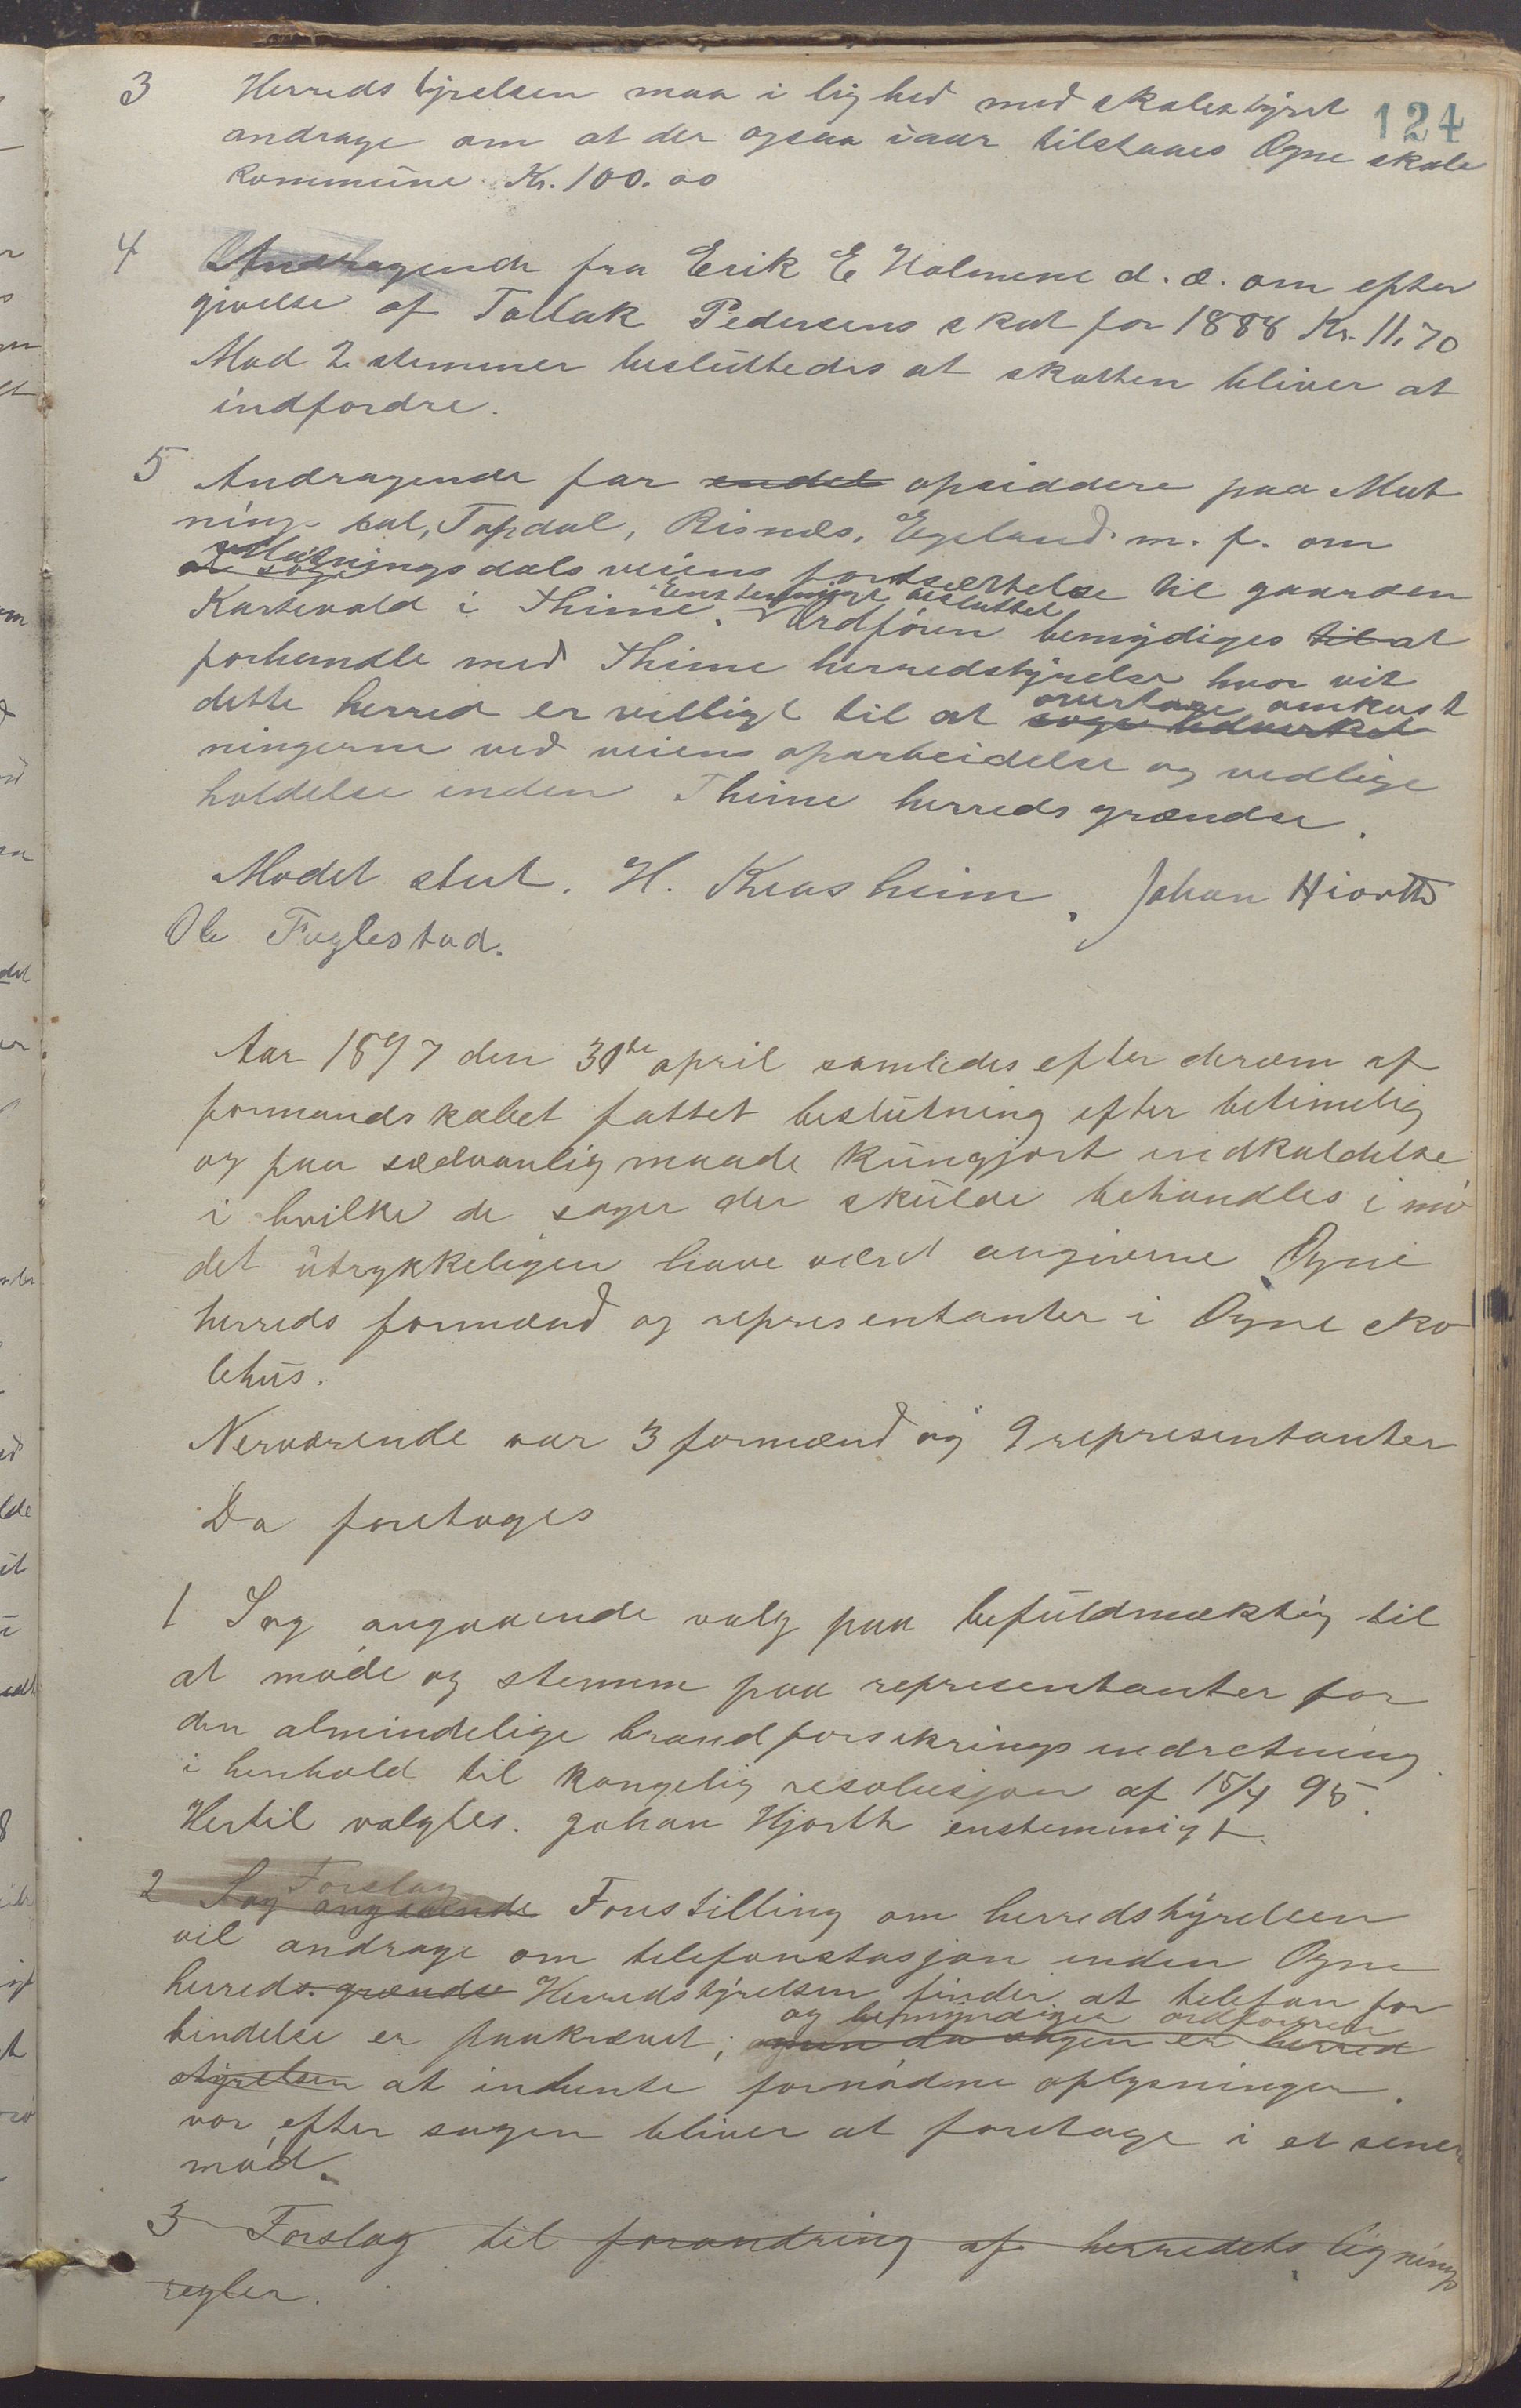 124
3 Herredstyrelsen maa i lighed med skolestyret
andrage om at der ogsaa iaar tilstaaes Ogne skole
kommune Kr. 100.00
4 Andragende fra Erik E Holmene d. æ. om efter
givelse af Tollak Pedersens skat for 1888 Kr. 11,70
Mod 2 stemmer besluttedes at skatten bliver at
indfordre.
5 Andragende far endel opsiddere paa Mut
nings dal, Tapdal, Risnes, Egeland m. f. om
at søge Mutningsdals veiens fortsættelse til gaarden
Kartevold i Thime. Enstemmigt besluttet Ordføren bemydiges til at
forhandle med Thime herredstyrelse hvor vit
dette herred er villigt til at søge udvirket overtage omkost
ningerne ved veiens oparbeidelse og vedlige
holdelse inden Thime herreds grændse.
Modet slut. H. Kvasheim. Johan Hiorth
Ole Fuglestad.
Aar 1897 den 30te april samledes efter derom af
formandskabet fattet beslutning efter betimelig
og paa sædvanlig maade kungjort indkaldelse
i hvilke de sager der skulde behandles i mø
det utrykkeligen have været angivene Ogne
herreds formænd og representanter i Ogne sko
lehus.
Nerværende var 3 formænd og 9 representanter
Da foretoges
1 Sag angaaende valg paa befuldmæktig til
at møde og stemm paa representanter for
den almindelige brandforsikrings indretning
i henhold til kongelig resolusjon af 15/4 95.
Hertil valgtes. Johan Hjorth enstemmigt.
2 Forslag
Sag angaaende Forestilling om herredstyrelsen
vil andrage om telefonstasjon inden Ogne
herreds grændse Herredstyrelsen finder at telefon for
og bemyndiger ordføreren
bindelse er paakrævet; men da sagen er herred
styrelsen at indhente fornødne oplysninger.
vor efter sagen bliver at foretage i et senere
mød.
3 Forslag til forandring af herredets lignings
regler.